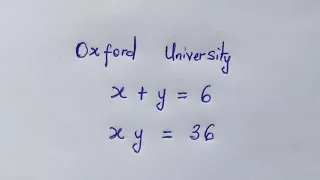 Oxford University
x + y = 6
x y = 36